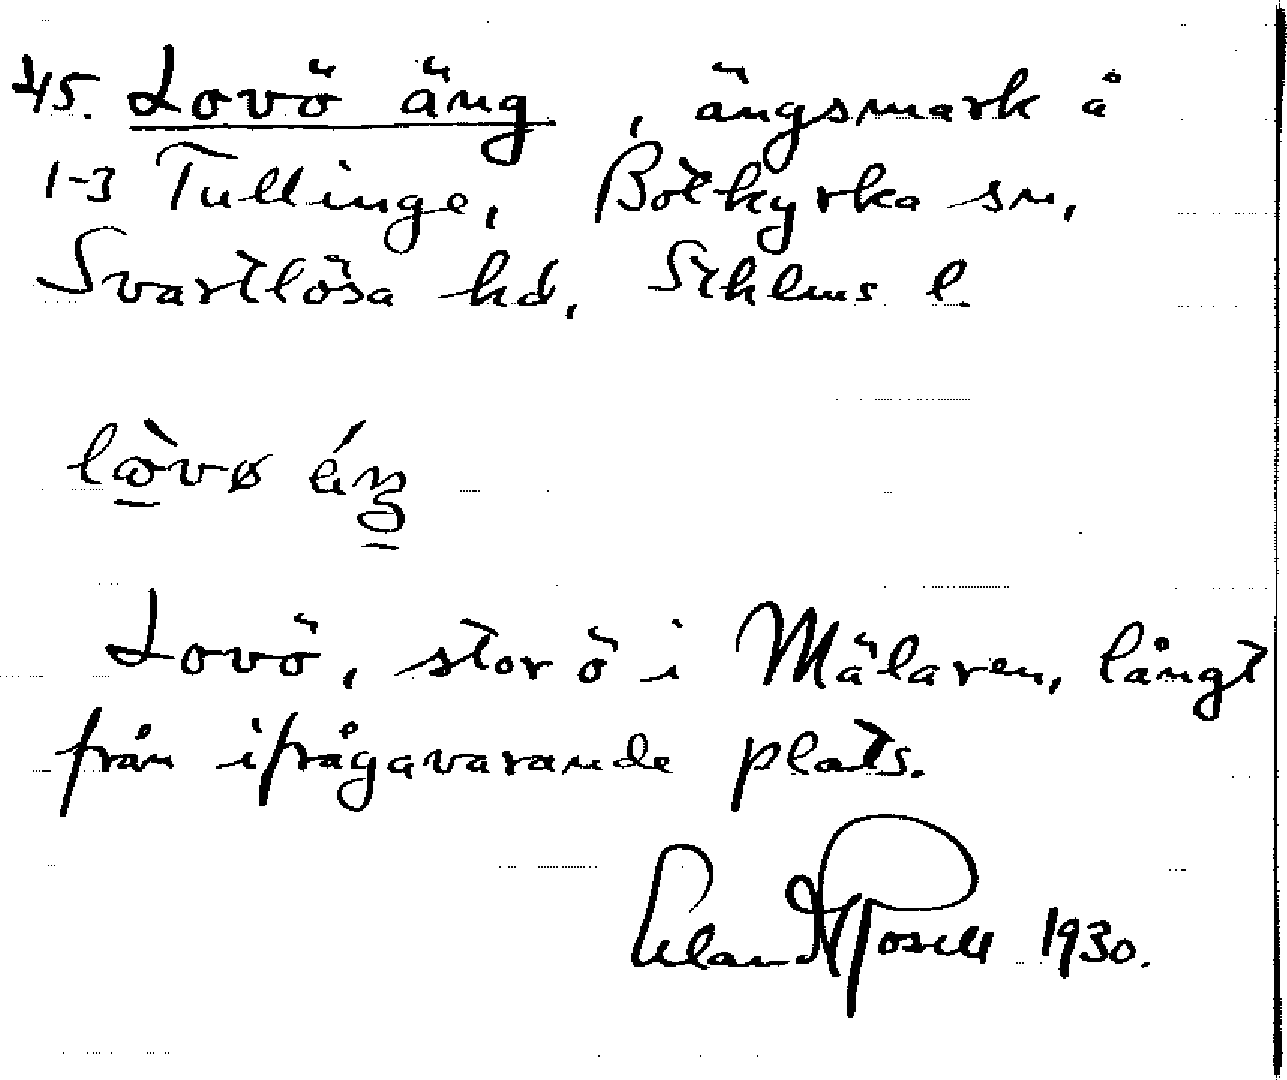 45. Lovö äng, ängsmark å
1-3 Tullinge, Botkyrka sn,
Svartlösa hd, Sthlms l
Lovö, stor ö i Mälaren, långt
från ifrågavarande plats.
Erland Rosell 1930.